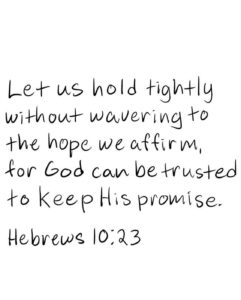 Let us hold tightly
without wavering to
the hope we affirm,
for God can be trusted
to keep His promise.
Hebrews 10:23